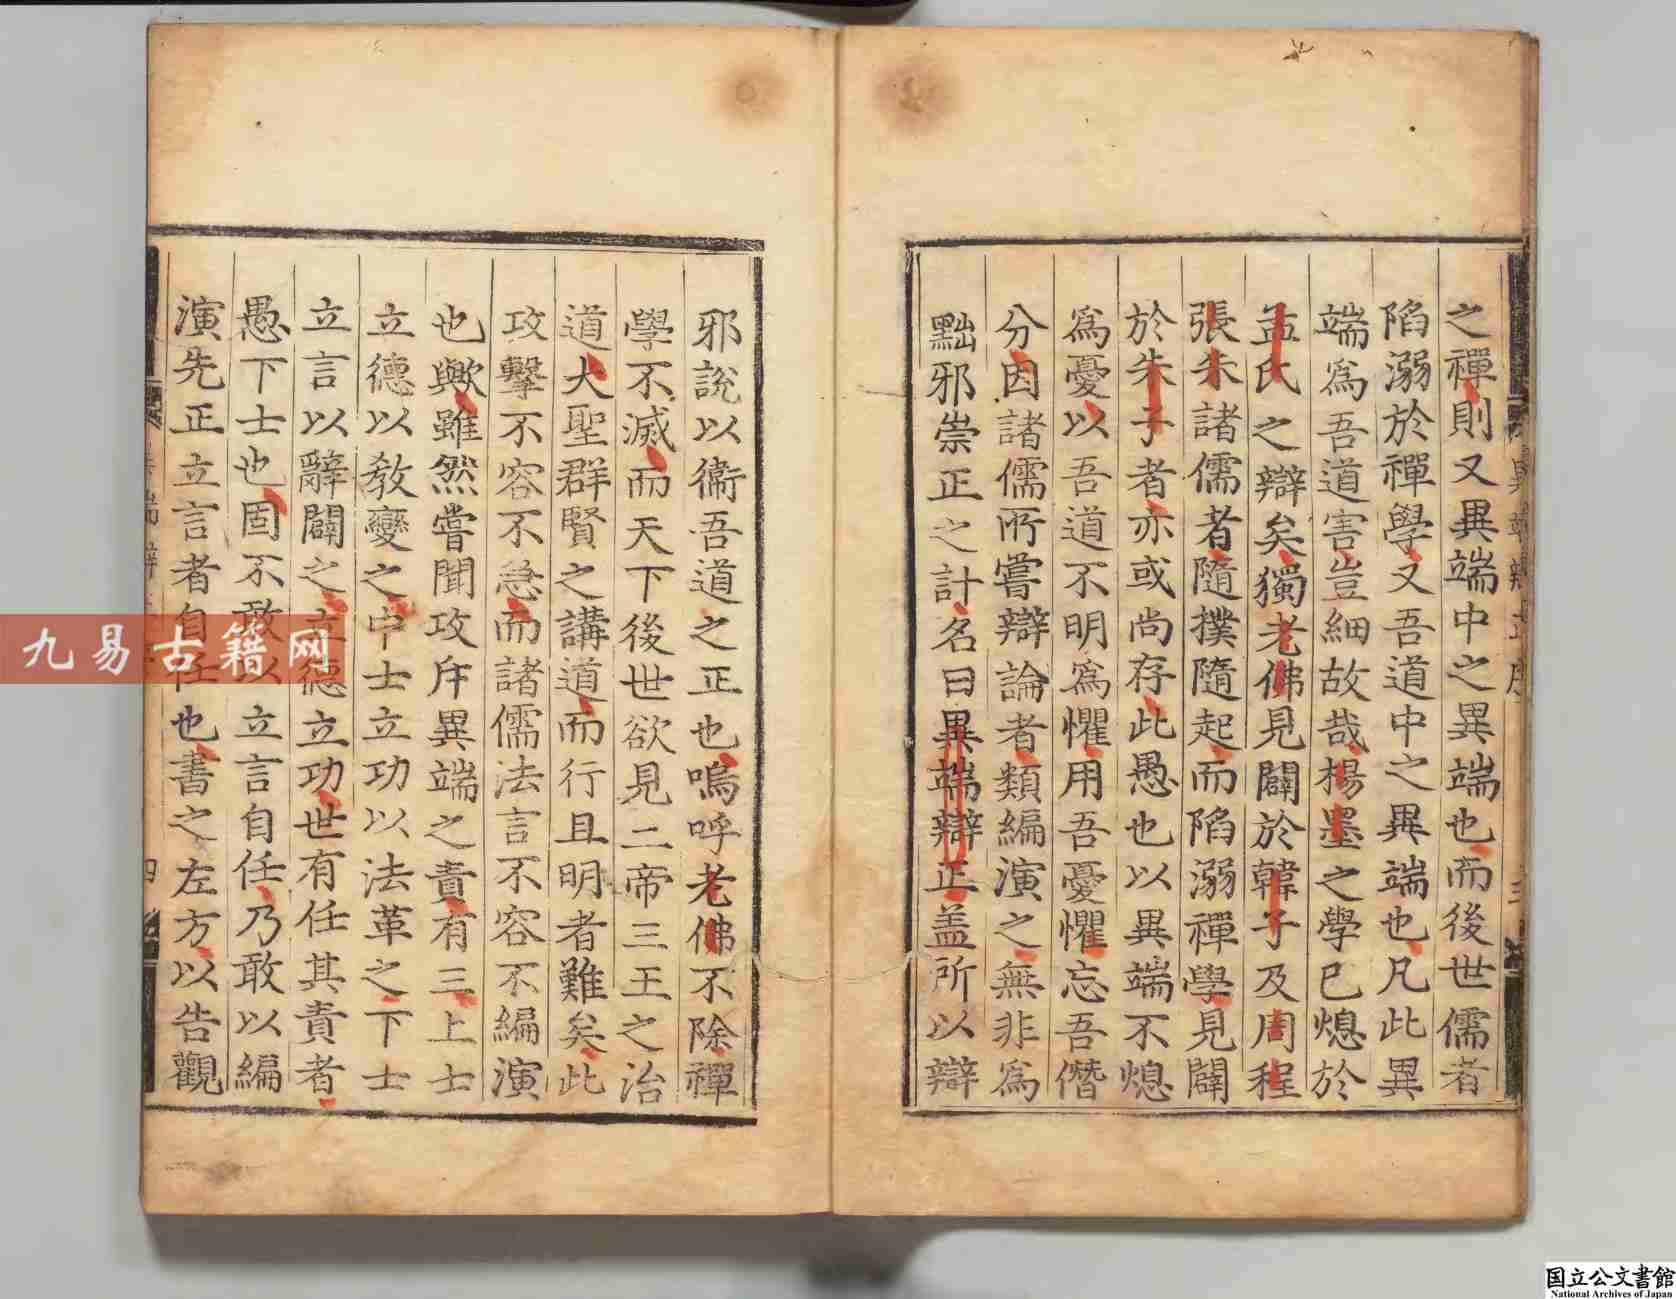 之禪則又異端中之異端也而後世儒者
陷溺於禪學又吾道中之異端也凡此異
端爲吾道害豈細故哉楊墨之學已熄於
孟氏之辯矣獨老佛見闢於韓子及周程
張朱諸儒者隨撲隨起而陷溺禪學見闢
於朱子者亦或尚存此愚也以異端不熄
爲憂以吾道不明爲懼用吾憂懼忘吾僭
分因諸儒所嘗辯論者類編演之無非爲
黜邪崇正之計名曰異端辯正盖所以辯
邪說以衞吾道之正也嗚呼老佛不除禪
學不滅而天下後世欲見二帝三王之治
道大聖群賢之講道而行且明者難矣此
攻擊不容不急而諸儒法言不容不編演
也歟雖然嘗聞攻斥異端之責有三上士
立德以敎變之中士立功以法革之下士
立言以辭闢之立德立功世有任其責者
愚下士也固不敢以立言自任乃敢以編
演先正立言者自任也書之左方以告觀
四
九易古籍网
国立公文書館
National Archives of Japan